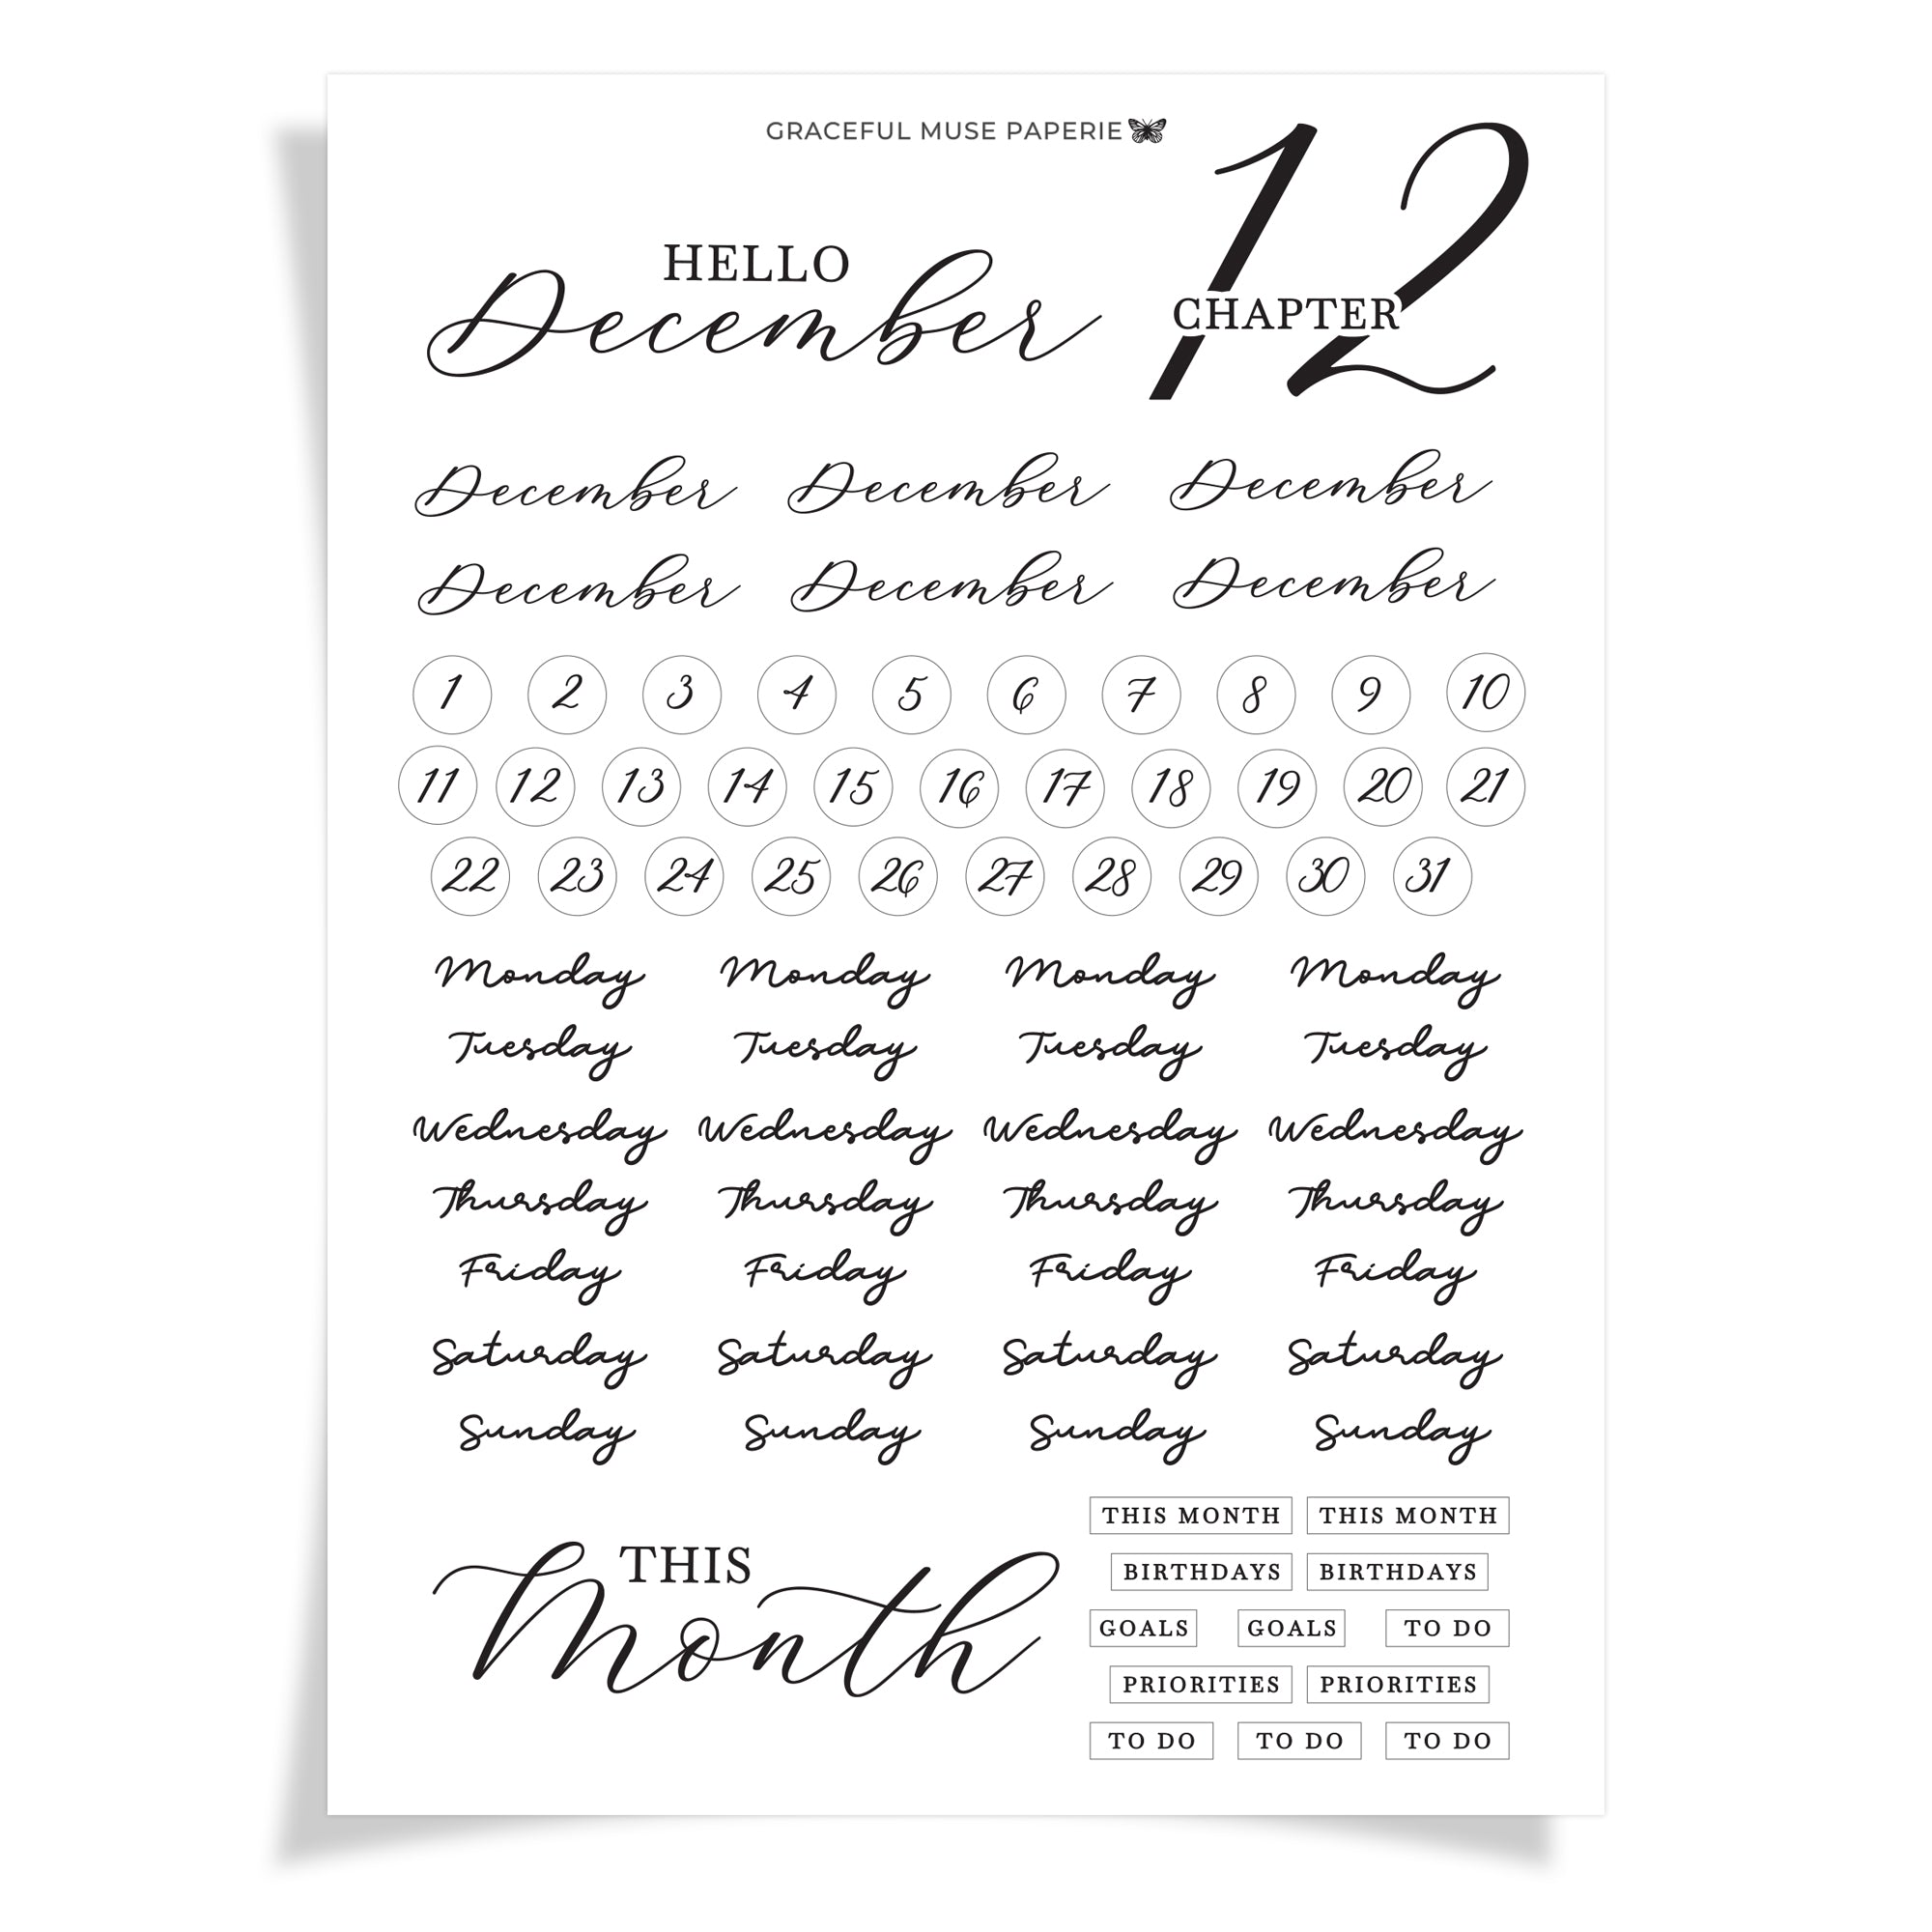 GRACEFUL MUSE PAPERIE
HELLO
December
12
CHAPTER
December December December
December December December
1 2 3 4 5 6 7 8 9 10
11 12 13 14 15 16 17 18 19 20 21
22 23 24 25 26 27 28 29 30 31
Monday Monday Monday Monday
Tuesday Tuesday Tuesday Tuesday
Wednesday Wednesday Wednesday Wednesday
Thursday Thursday Thursday Thursday
Friday Friday Friday Friday
Saturday Saturday Saturday Saturday
Sunday Sunday Sunday Sunday
THIS
Month
THIS MONTH THIS MONTH
BIRTHDAYS BIRTHDAYS
GOALS GOALS TO DO
PRIORITIES PRIORITIES
TO DO TO DO TO DO